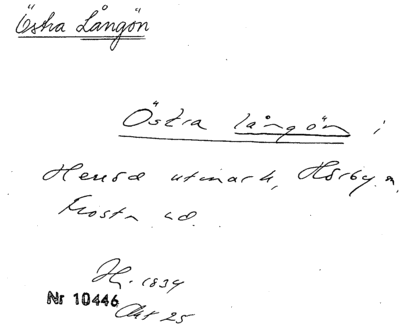 Östra Långön
Östra långön i
Henset utmark, Hörby sn,
Frosta hd.
H. 1834
Nr 10446
Akt 25